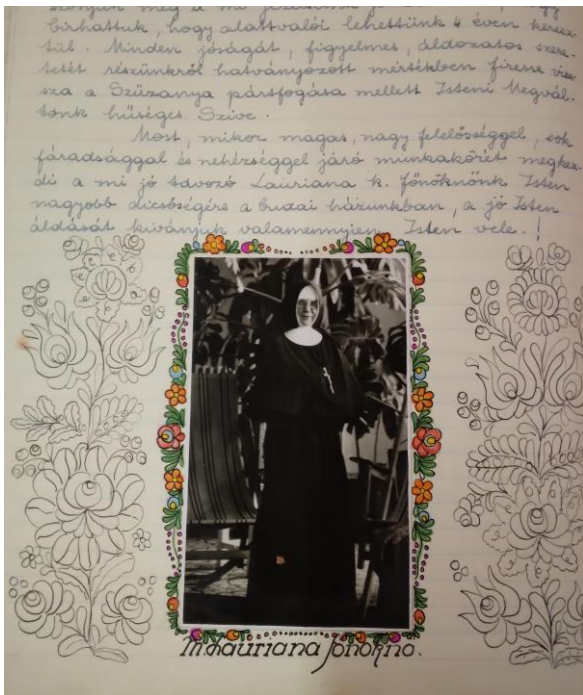 meg a mi
bírhattuk, hogy alattvalói lehettünk 4 éven keresz-
tül. Minden jóságát, figyelmes, áldozatos szere-
tetét részünkről hatványozott mértékben fizesse visz-
sza a Szűzanya pártfogása mellett Isteni Megvál-
tónk hűséges Szíve.
Most, mikor magas, nagy felelősséggel, sok
fáradsággal és nehézséggel járó munkakörét megkez-
di a mi jó távozó Lauriana k. főnöknőnk Isten
nagyobb dicsőségére a budai házunkban, a jó Isten
áldását kívánjuk valamennyien. Isten vele!
M. Lauriana főnöknő.